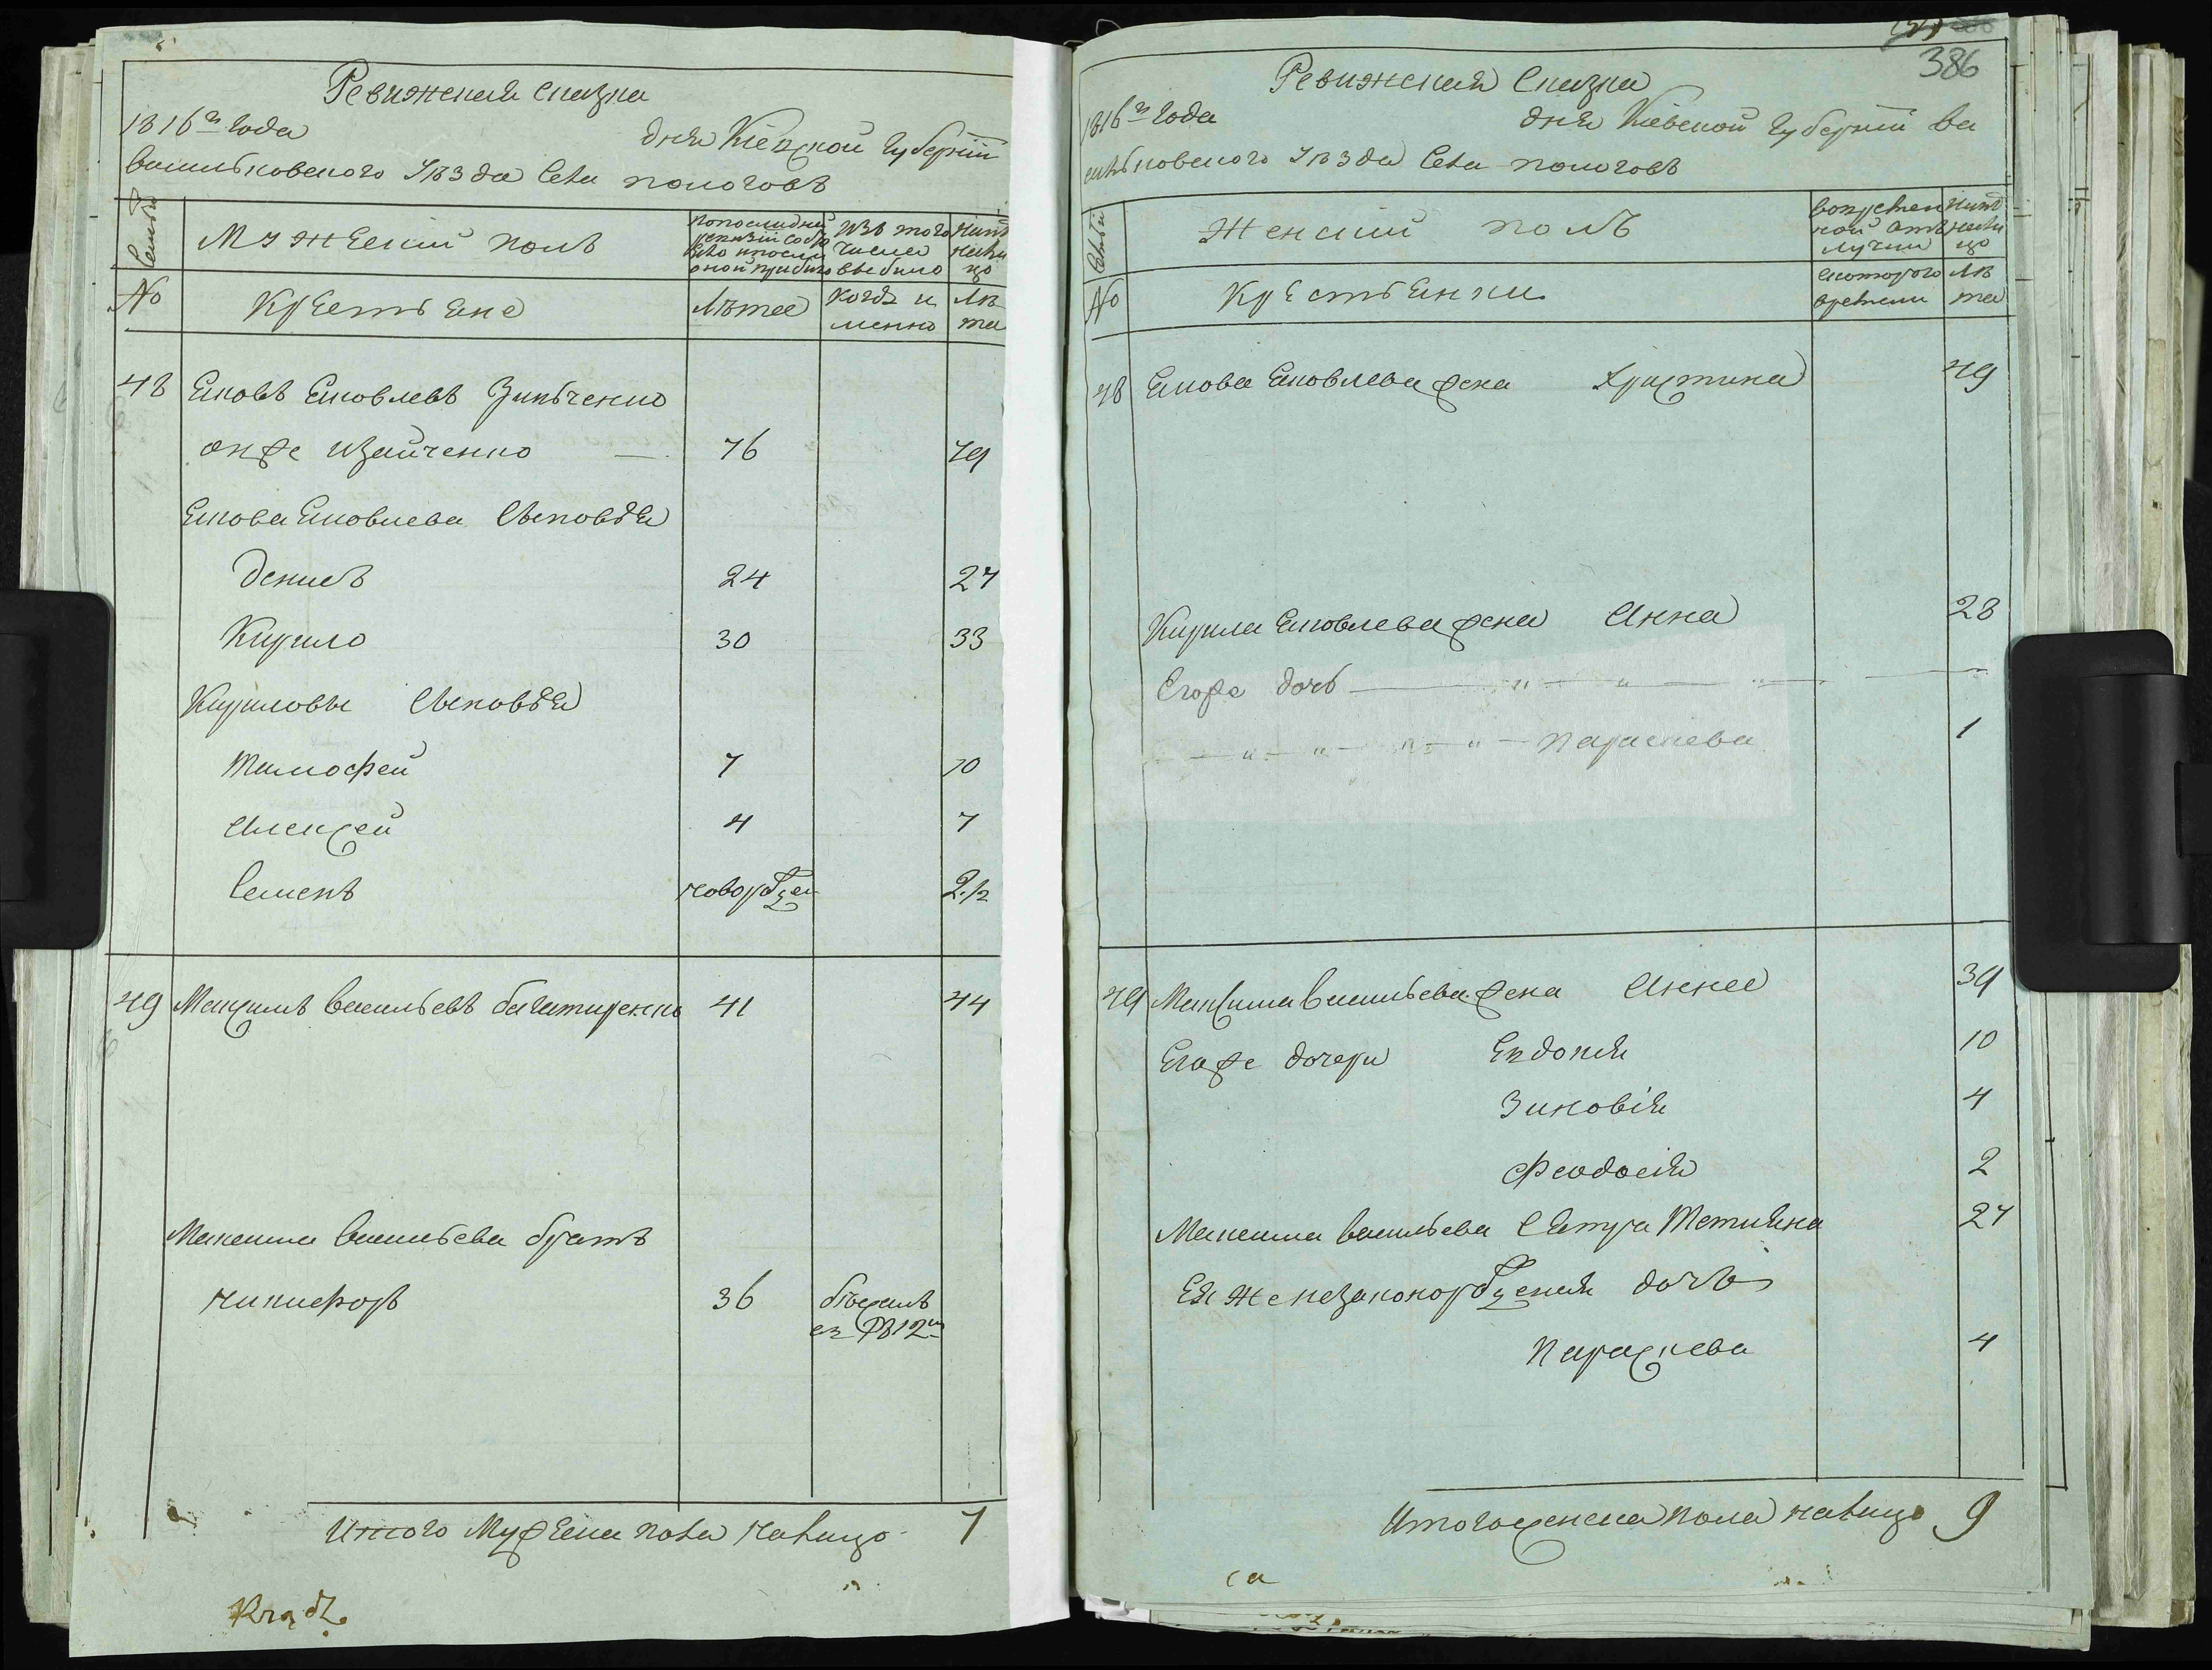 Ревижская сказка
1816го Года дня Кіевской Губерніи
васильковского Уѣзда Села пологовъ
Семьи
Мужескій полъ
По последней ревизіи состояло и после оной прибыло
Изъ того числа выбыло
Ныне на лицо
№
Крестьяне
Лѣта
Когда именно
Лѣта
48 Яковъ Яковлевъ Зинченко
онже Изайченко — 76 79
Якова Яковлева Сыновья
Денисъ 24 27
Кирило 30 33
Кириловы Сыновья
Тимофей 7 10
Алексей 4 7
Семенъ новорожден 2 1/2
49 Максимъ васильевъ багатиренко 41 44
Максима васильева братъ
никифоръ 36 бѣжалъ
въ 1812м
Итого Мужеска пола налицо 7
Krądz.
386
Ревижская Сказка
1816го Года дня Кіевской Губерніи ва
сильковского Уѣзда Села пологовъ
Семьи
Женскій полъ
Во временной отлучки
Ныне налицо
№
Крестьянки
Скоторого времени
Лѣта
48 Якова Яковлева жена Христина 49
Кирила Яковлева жена Анна 28
Егоже дочь — " — " — " —
— " — " — " — " — параскева 1
49 Максима васильева жена Анна 39
Егоже дочери Евдокія 10
Зиновія 4
Феодосія 2
Максима васильева Сестра Татияна 27
Ея же незаконорожденая дочь
Параскева 4
Итого женска пола налицо 9
са